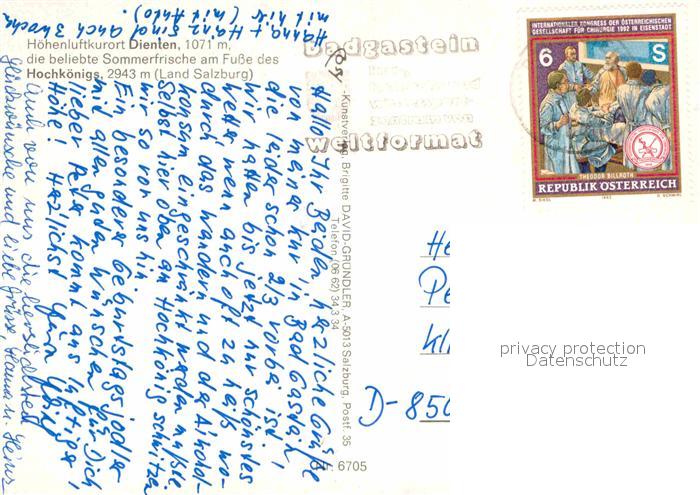 Höhenluftkurort Dienten, 1071 m,
die beliebte Sommerfrische am Fuße des
Hochkönigs, 2943 m (Land Salzburg)
Badgastein
weltformat
INTERNATIONALER KONGRESS DER ÖSTERREICHISCHEN
GESELLSCHAFT FÜR CHIRURGIE 1992 IN EISENSTADT
6 S
THEODOR BILLROTH
REPUBLIK ÖSTERREICH
1992
Hanna + Hanz sind auch 3 Woch
mit hier (mit Auto).
Hallo Ihr Beiden, herzliche Grüße
von meiner Kur in Bad Gastein,
die leider schon 2/3 vorbei ist.
Wir hatten bis jetzt nur schönstes
Wetter wenn auch oft zu heiß wo-
durch das Wandern und der Alkohol-
konsum eingeschränkt werden mußte.
Selbst hier oben am Hochkönig schwitzen
wir so vor uns hin.
Ein besonderer Geburtstagsjodler
mit allen guten Wünschen für Dich
lieber Peter kommt aus luftiger
Höhe! Herzlichst
Auch von mir die herzlichsten
Glückwünsche und liebe Grüsse, Hanna u. Heinz
Kunstverlag Brigitte DAVID-GRÜNDLER, A-5013 Salzburg, Postf. 35
Telefon (06 62) 34 3 34
Nr. 6705
He
Pe
Kl
D-850
privacy protection
Datenschutz